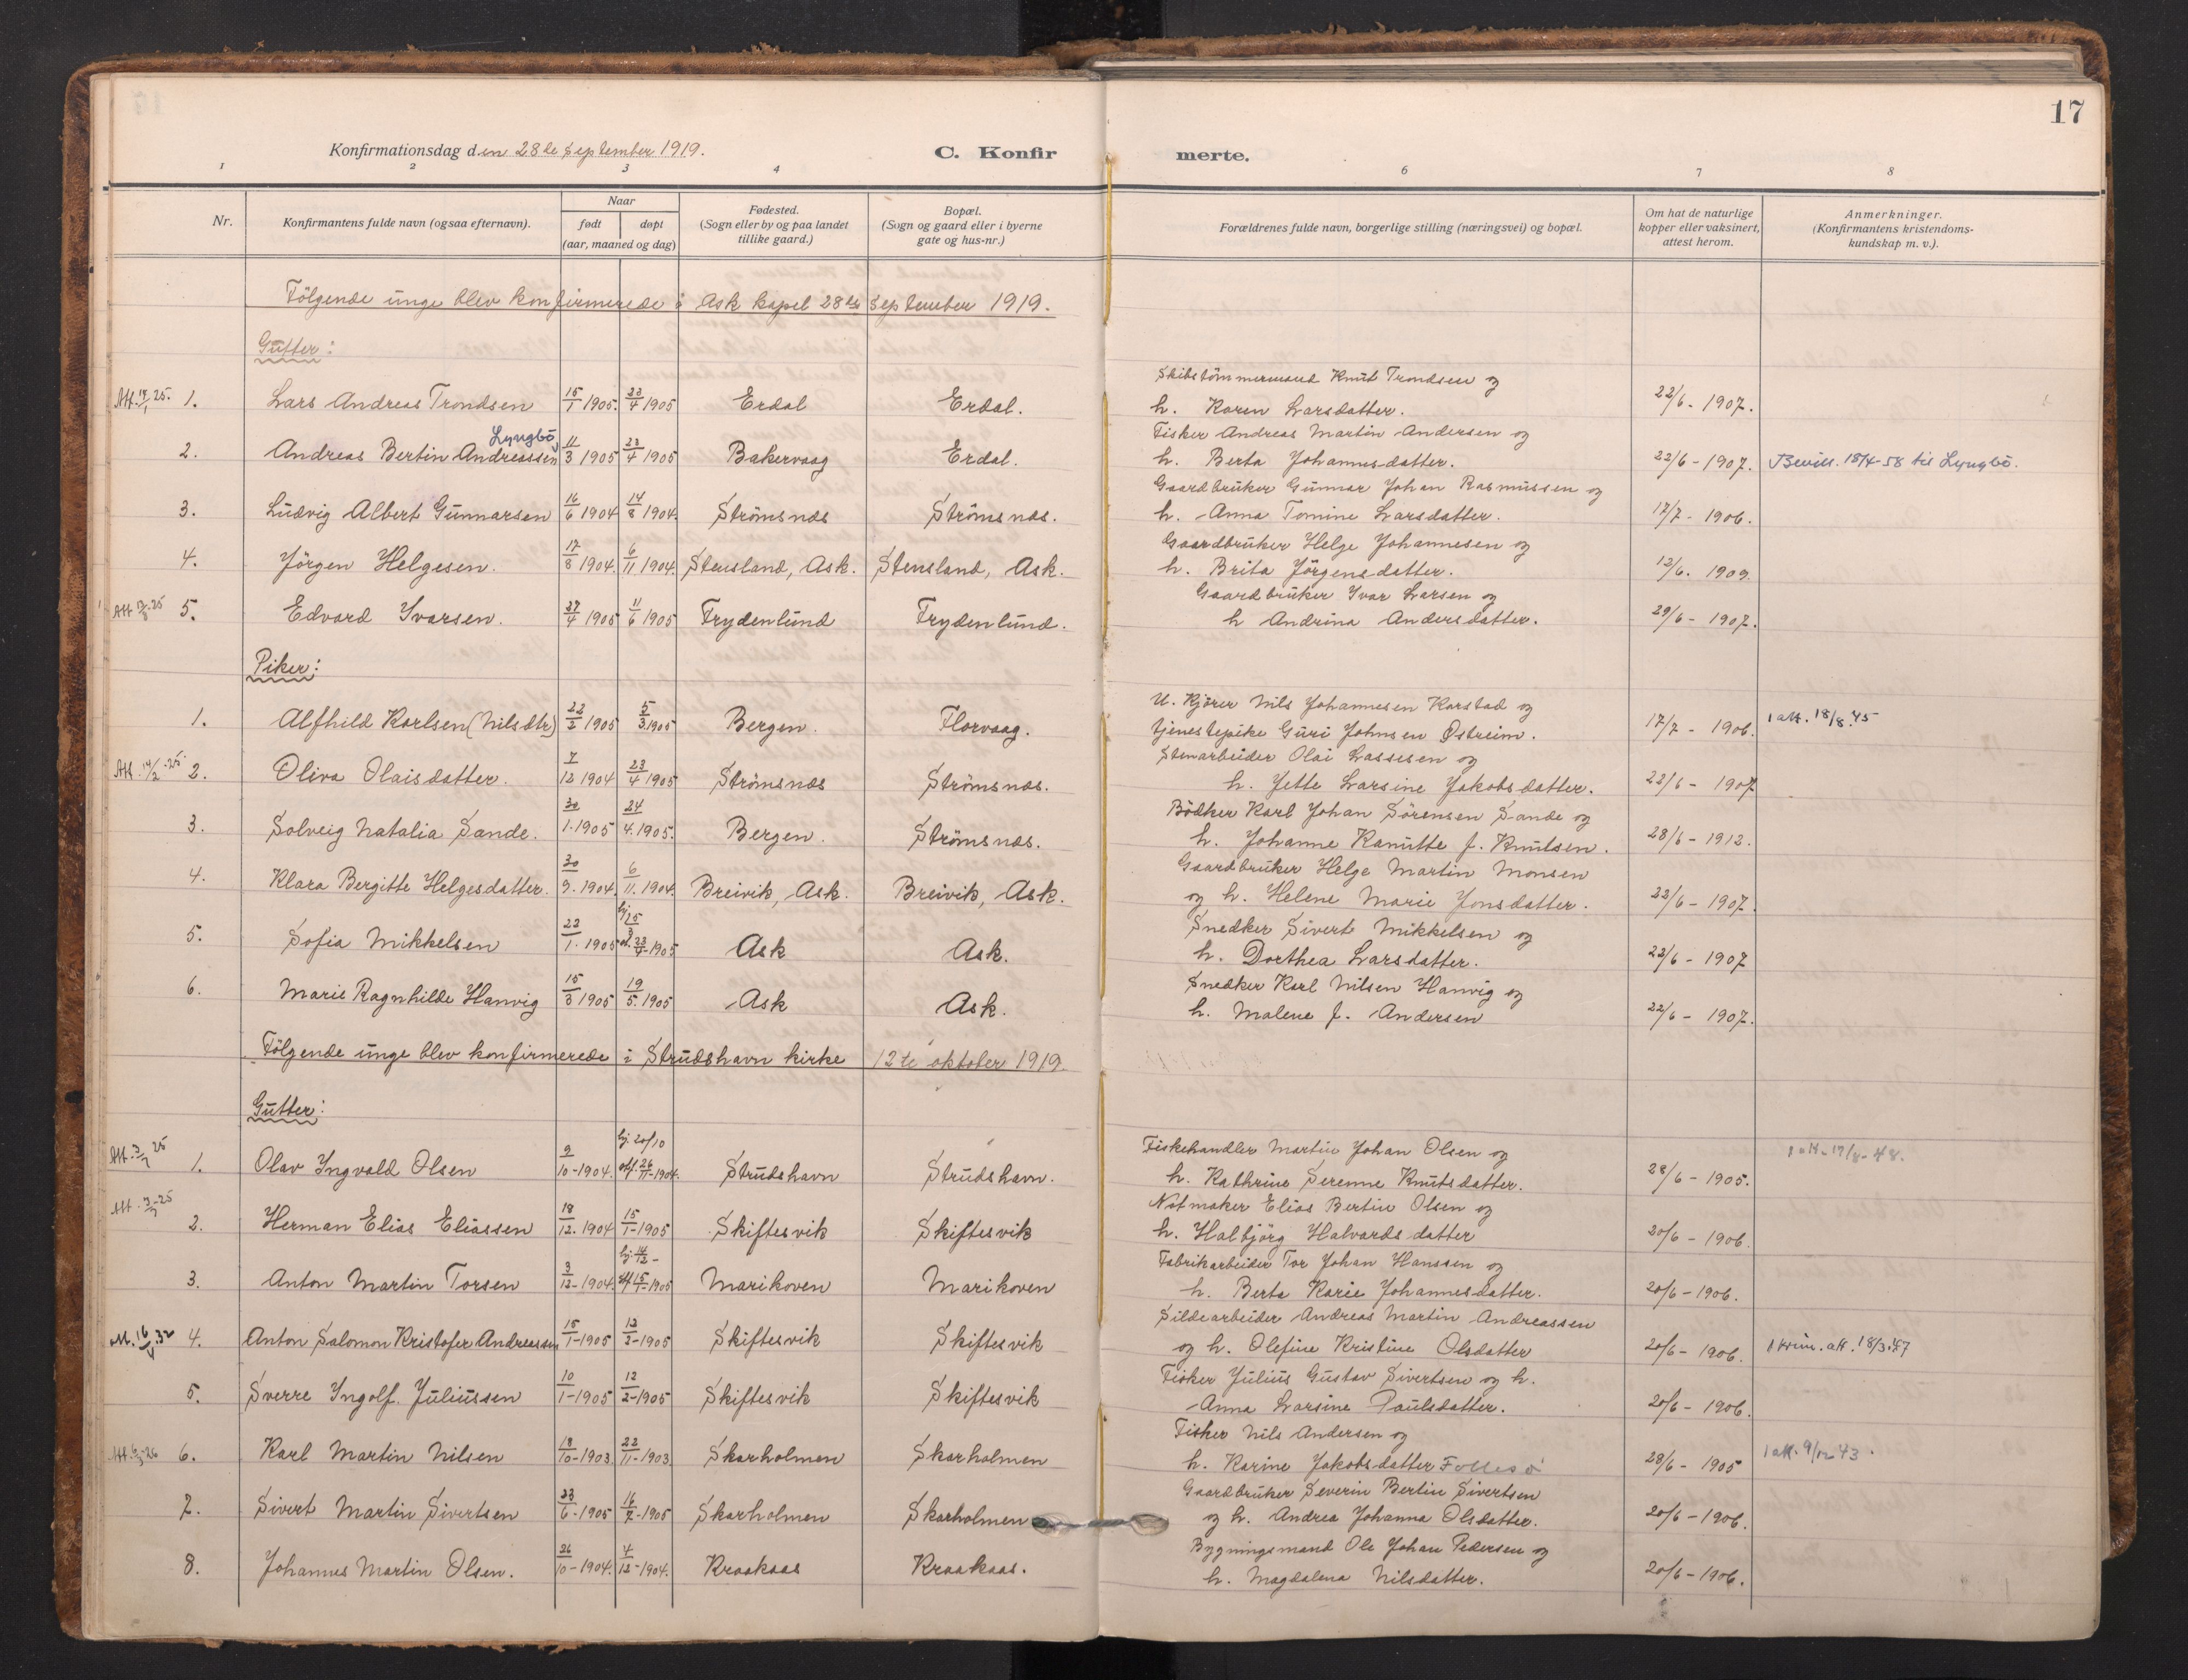 17
Konfirmationsdag den 28de September 1919.
C. Konfirmerte.
1 2 3 4 6 7 8
Nr.
Konfirmantens fulde navn (ogsaa efternavn).
Naar
født døpt
(aar, maaned og dag)
Fødested.
(Sogn eller by og paa landet
tillike gaard.)
Bopæl.
(Sogn og gaard eller i byerne
gate og hus-nr.)
Forældrenes fulde navn, borgerlige stilling (næringsvei) og bopæl.
Om hat de naturlige
kopper eller vaksinert,
attest herom.
Anmerkninger.
(Konfirmantens kristendoms-
kundskap m. v.).
Følgende unge blev konfirmerede i Ask kapel 28de September 1919.
Gutter:
Skibstömmermand Knut Trondsen og
Att. 14/1 25. 1. Lars Andreas Trondsen 15/1 1905. 23/4 1905 Erdal Erdal. h. Karen Larsdatter. 22/6 - 1907.
Lyngbö
Fisker Andreas Martin Andersen og
2. Andreas Bertin Andreassen 11/3 1905 23/4 1905 Bakervaag Erdal. h. Berta Johannesdatter. 22/6 - 1907. Bevill. 18/4-58 til Lyngbö.
Gaardbruker Gunnar Johan Rasmussen og
3. Ludvig Albert Gunnarsen 16/6 1904 14/8 1904. Strömsnes Strömsnes. h. Anna Tomine Larsdatter. 17/7 - 1906.
Gaardbruker Helge Johannesen og
4. Jörgen Helgesen. 17/8 1904. 6/11 1904. Stensland, Ask. Stensland, Ask. h. Brita Jörgensdatter. 12/6. 1909.
Gaardbruker Ivar Larsen og
Att 25 5. Edvard Ivarsen. 27/4 1905 11/6 1905 Frydenlund Frydenlund. h Andrina Andersdatter. 29/6 - 1907.
Piker:
U. Kjörer Nils Johannesen Karstad og
1. Alfhild Karlsen (Nilsdtr) 22/2 1905 5/3 1905 Bergen. Florvaag. tjenestepike Guri Johnsen Østreim. 17/7 - 1906. 1 att. 18/8.45
Stenarbeider Olai Lassesen og
Att. 14/2 -25. 2. Oliva Olaisdatter. 7/12 1904 23/4 1905 Strömsnes Strömsnes. h. Jette Larsine Jakobsdatter. 22/6 - 1907
Bödker Karl Johan Sörensen Sande og
3. Solveig Natalia Sande. 30/1. 1905 24/4. 1905. Bergen. Strömsnes. h. Johanne Kanutte f. Knutsen. 28/6 - 1912.
Gaardbruker Helge Martin Monsen
4. Klara Bergitte Helgesdatter. 30/9. 1904 6/11. 1904. Breivik, Ask. Breivik, Ask. og h. Helene Marie Jonsdatter. 22/6 - 1907.
Snedker Sivert Mikkelsen og
5. Sofia Mikkelsen 23/1. 1905 hj. 15/3 st. 23/4-1905 Ask Ask. h. Dorthea Larsdatter. 22/6 - 1907
Snedker Karl Nilsen Hanvig og
6. Marie Ragnhilde Hanvig 15/3 1905 19/5. 1905 Ask Ask. h. Malene f. Andersen 22/6 - 1907.
Følgende unge blev konfirmerede i Strudshavn kirke 12te oktober 1919.
Gutter:
Fiskehandler Martin Johan Olsen og
Att. 3/7 25 1. Olav Ingvald Olsen 9/10-1904. hj. 20/10 stf. 26/11-1904. Strudshavn Strudshavn. h. Kathrine Serenne Knutsdatter. 28/6 - 1905. 1 att. 17/8-48.
Notmaker Elias Bertin Olsen og
Att. 3/7-25 2. Herman Elias Eliassen 18/12. 1904 15/1-1905 Skiftesvik Skiftesvik h. Halbjörg Halvardsdatter 20/6 - 1906.
Fabrikarbeider Tor Johan Hanssen og
3. Anton Martin Torsen 3/12-1904. hj. 14/12- stf 15/1-1905 Marikoven Marikoven h. Berta Karie Johannesdatter. 20/6 - 1906.
Sildearbeider Andreas Martin Andreassen
att. 16/ 32 4. Anton Salomon Kristofer Andreassen 15/1-1905 12/2-1905 Skiftesvik Skiftesvik og h. Olefine Kristine Olsdatter 20/6 - 1906. 1 krim. att. 18/3.47
Fisker Julius Gustav Sivertsen og h.
5. Sverre Ingolf. Juliussen 10/1-1905 12/2-1905 Skiftesvik Skiftesvik Anna Larsine Paulsdatter. 20/6 - 1906.
Fisker Nils Andersen og
Att. 26 6. Karl Martin Nilsen 18/10-1903. 22/11-1903 Skarholmen Skarholmen h. Karine Jakobsdatter Follesö 28/6 - 1905 1 att. 9/12 43.
Gaardbruker Severin Bertin Sivertsen
7. Sivert Martin Sivertsen 23/6-1905 16/7-1905 Skarholmen Skarholmen og h. Andrea Johanna Olsdatter. 20/6 - 1906.
Bygningsmand Ole Johan Pedersen og
8. Johannes Martin Olsen. 26/10-1904. 4/12-1904. Kraakaas Kraakaas. h. Magdalena Nilsdatter. 20/6 - 1906.